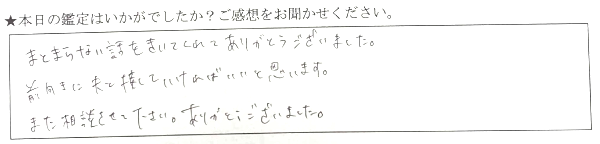 ★本日の鑑定はいかがでしたか？ご感想をお聞かせください。
まとまらない話をきいてくれてありがとうございました。
前向きに夫と接していければいいと思います。
また相談させて下さい。ありがとうございました。